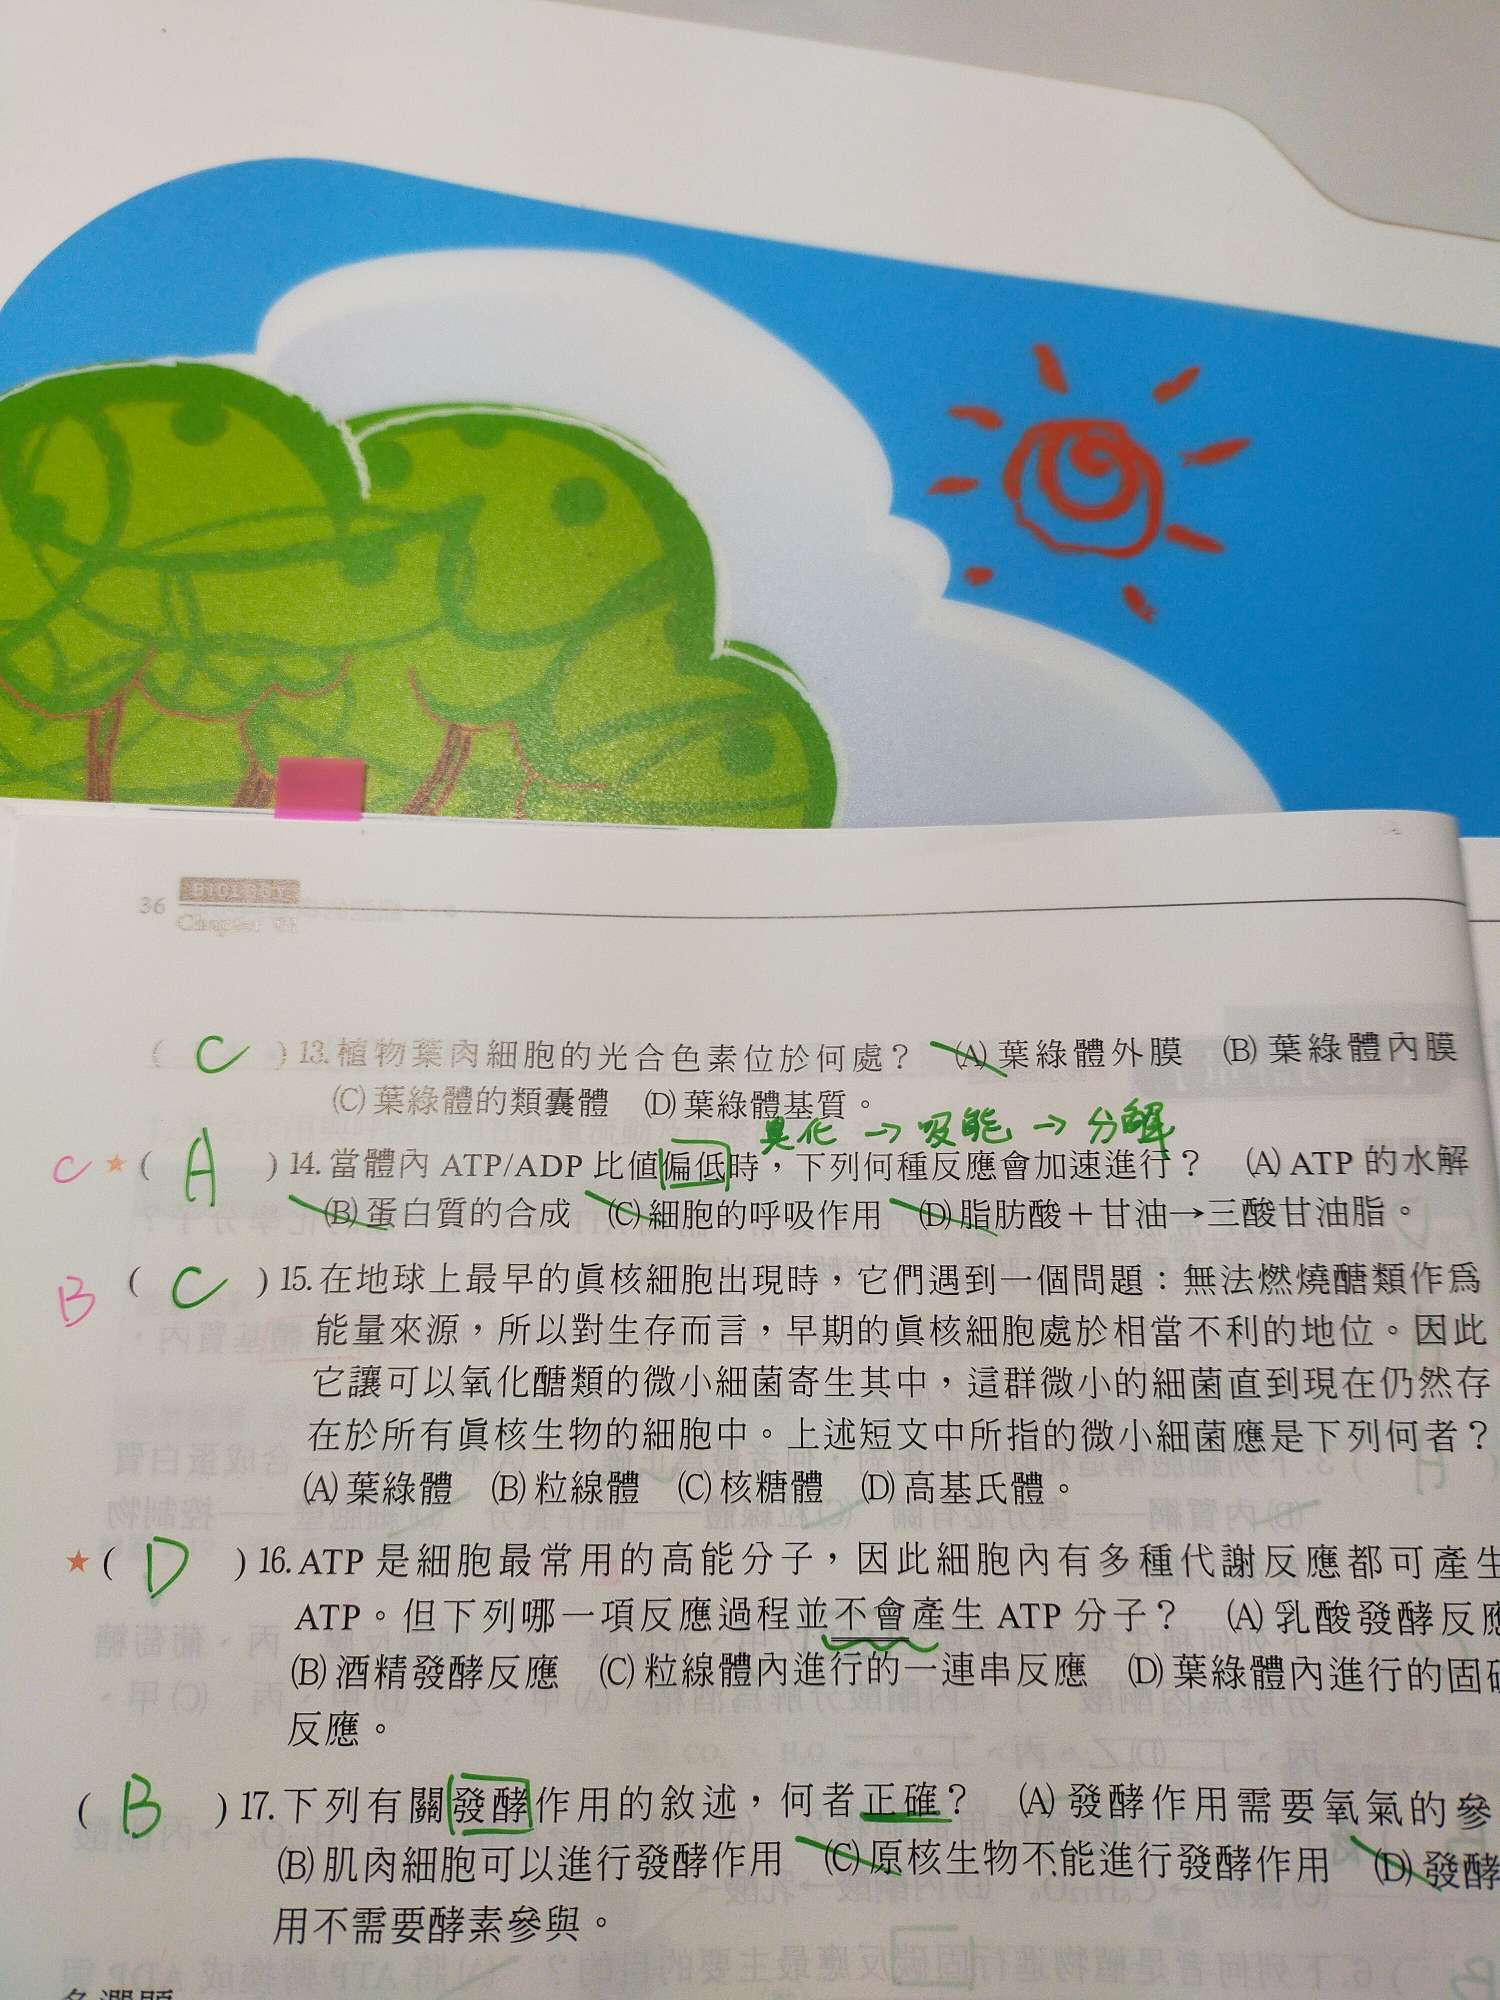 36 BIOLOGY
Chapter 01
( C ) 13. 植物葉肉細胞的光合色素位於何處？ (A) 葉綠體外膜 (B) 葉綠體內膜
(C) 葉綠體的類囊體 (D) 葉綠體基質。
異化 → 吸能 → 分解
C ★ ( A ) 14. 當體內 ATP/ADP 比值偏低時，下列何種反應會加速進行？ (A) ATP 的水解
(B) 蛋白質的合成 (C) 細胞的呼吸作用 (D) 脂肪酸＋甘油→三酸甘油脂。
B ( C ) 15. 在地球上最早的眞核細胞出現時，它們遇到一個問題：無法燃燒醣類作爲
能量來源，所以對生存而言，早期的眞核細胞處於相當不利的地位。因此
它讓可以氧化醣類的微小細菌寄生其中，這群微小的細菌直到現在仍然存
在於所有眞核生物的細胞中。上述短文中所指的微小細菌應是下列何者？
(A) 葉綠體 (B) 粒線體 (C) 核糖體 (D) 高基氏體。
★ ( D ) 16. ATP 是細胞最常用的高能分子，因此細胞內有多種代謝反應都可產生
ATP。但下列哪一項反應過程並不會產生 ATP 分子？ (A) 乳酸發酵反應
(B) 酒精發酵反應 (C) 粒線體內進行的一連串反應 (D) 葉綠體內進行的固碳
反應。
( B ) 17. 下列有關發酵作用的敘述，何者正確？ (A) 發酵作用需要氧氣的參
(B) 肌肉細胞可以進行發酵作用 (C) 原核生物不能進行發酵作用 (D) 發酵
用不需要酵素參與。